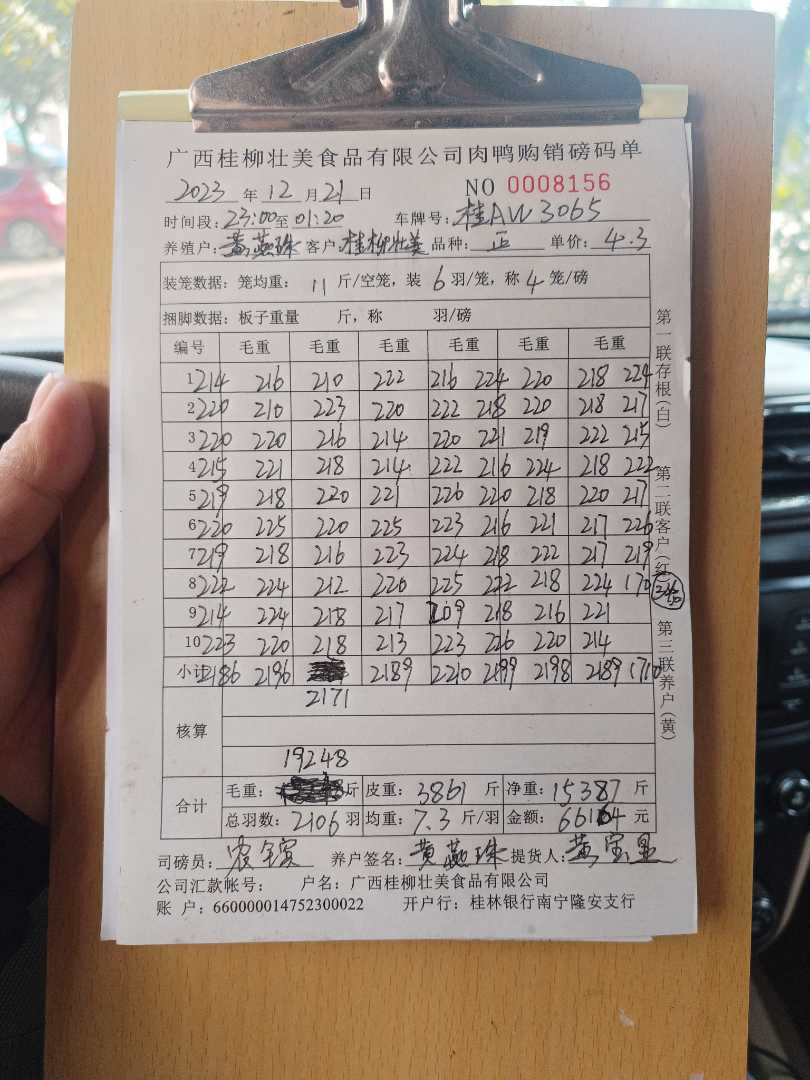 广西桂柳壮美食品有限公司肉鸭购销磅码单
2023 年 12 月 21 日 NO 0008156
时间段: 23:00 至 01:20 车牌号: 桂AW3065
养殖户: 黄燕珠 客户: 桂柳壮美 品种: 正 单价: 4.3
装笼数据: 笼均重: 11 斤/空笼，装 6 羽/笼，称 4 笼/磅
捆脚数据: 板子重量 斤，称 羽/磅
编号 毛重 毛重 毛重 毛重 毛重 毛重
1 214 216 210 222 216 224 220 218 224
2 220 210 223 220 222 218 220 218 217
3 220 220 216 214 220 221 219 222 215
4 215 221 218 214 222 216 224 218 222
5 219 218 220 221 226 220 218 220 217
6 220 225 220 225 223 216 221 217 226
7 219 218 216 223 224 218 222 217 219
8 222 224 212 220 225 222 218 224 170
9 214 224 218 217 209 218 216 221
10 223 220 218 213 223 226 220 214
小计 2186 2196 2189 2210 2199 2198 2189 1710
2171
核算
19248
合计 毛重: 斤 皮重: 3861 斤 净重: 15387 斤
总羽数: 2106 羽 均重: 7.3 斤/羽 金额: 66164 元
司磅员: 养户签名: 黄燕珠 提货人: 黄宝
公司汇款帐号: 户名: 广西桂柳壮美食品有限公司
账 户: 660000014752300022 开户行: 桂林银行南宁隆安支行
第一联存根(白)
第二联客户(红)
第三联养户(黄)